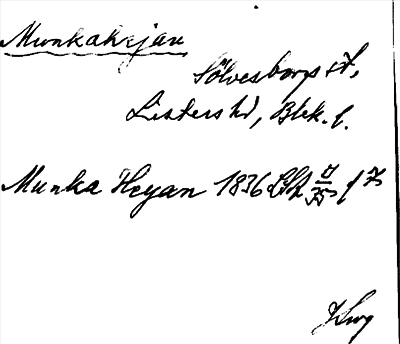 Munkahejan
Sölvesborgs sn,
Listers hd, Blek. l.
Munka Heyan 1836